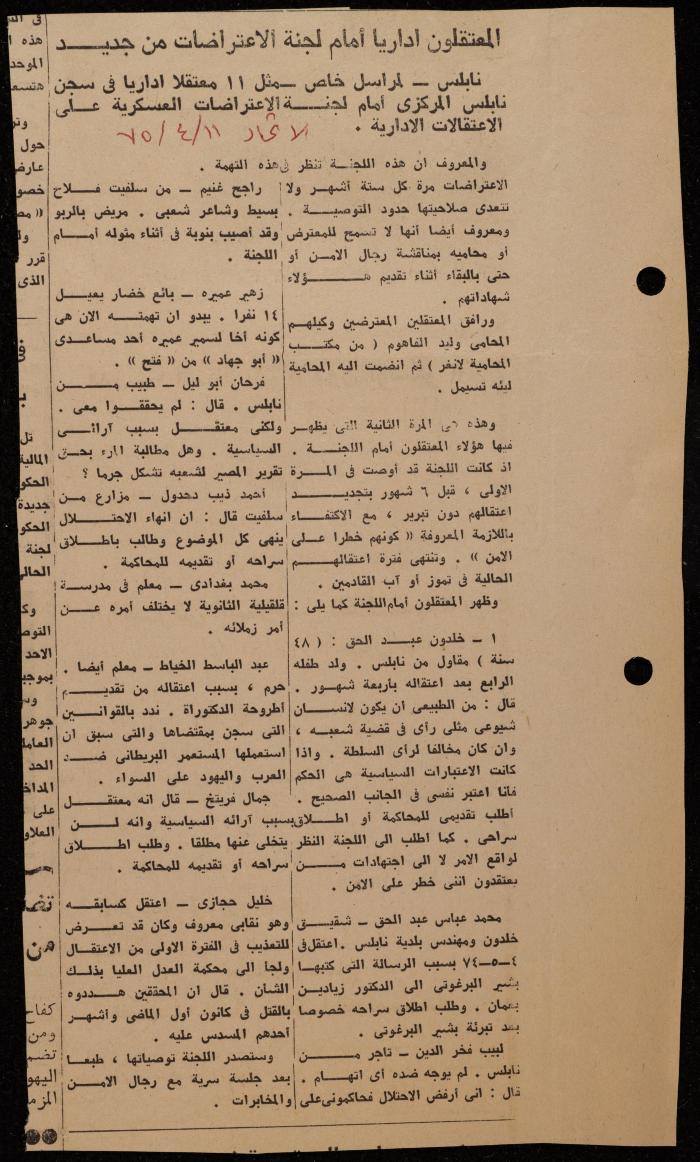 المعتقلون اداريا أمام لجنة الاعتراضات من جديد
نابلس – لمراسل خاص – مثل ١١ معتقلا اداريا فى سجن
نابلس المركزى أمام لجنة الاعتراضات العسكرية على
الاعتقالات الادارية .
الاتحاد ١١/٤/٧٥
والمعروف ان هذه اللجنة تنظر فى
الاعتراضات مرة كل ستة أشهر ولا
تتعدى صلاحيتها حدود التوصية .
ومعروف أيضا أنها لا تسمح للمعترض
أو محاميه بمناقشة رجال الامن أو
حتى بالبقاء أثناء تقديم هؤلاء
شهاداتهم .
ورافق المعتقلين المعترضين وكيلهم
المحامى وليد الفاهوم ( من مكتب
المحامية لانغر ) ثم انضمت اليه المحامية
ليئه تسيمل .
وهذه هى المرة الثانية التى يظهر
فيها هؤلاء المعتقلون أمام اللجنة .
اذ كانت اللجنة قد أوصت فى المرة
الاولى ، قبل ٦ شهور بتجديد
اعتقالهم دون تبرير ، مع الاكتفاء
باللازمة المعروفة « كونهم خطرا على
الامن » . وتنتهى فترة اعتقالهم
الحالية فى تموز أو آب القادمين .
وظهر المعتقلون أمام اللجنة كما يلى :
١ – خلدون عبد الحق : ( ٤٨
سنة ) مقاول من نابلس . ولد طفله
الرابع بعد اعتقاله باربعة شهور .
قال : من الطبيعى أن يكون لانسان
شيوعى مثلى رأى فى قضية شعبه ،
وان كان مخالفا لرأى السلطة . واذا
كانت الاعتبارات السياسية هى الحكم
فأنا اعتبر نفسى فى الجانب الصحيح .
أطلب تقديمى للمحاكمة أو اطلاق
سراحى . كما اطلب الى اللجنة النظر
لواقع الامر لا الى اجتهادات من
يعتقدون اننى خطر على الامن .
محمد عباس عبد الحق – شقيق
خلدون ومهندس بلدية نابلس . اعتقل فى
٤–٥–٧٤ بسبب الرسالة التى كتبها
بشير البرغوتى الى الدكتور زيادين
بعمان . وطلب اطلاق سراحه خصوصا
بعد تبرئة بشير البرغوتى .
لبيب فخر الدين – تاجر من
نابلس . لم يوجه ضده أى اتهام .
قال : انى أرفض الاحتلال فحاكمونى على
هذه التهمة .
راجح غنيم – من سلفيت فلاح
بسيط وشاعر شعبى . مريض بالربو
وقد أصيب بنوبة فى أثناء مثوله أمام
اللجنة .
زهير عميره – بائع خضار يعيل
١٤ نفرا . يبدو ان تهمته الان هى
كونه أخا لسمير عميره أحد مساعدى
« أبو جهاد » من « فتح » .
فرحان أبو ليل – طبيب من
نابلس . قال : لم يحققوا معى .
ولكنى معتقل بسبب آرائى
السياسية . وهل مطالبة المرء بحق
تقرير المصير لشعبه تشكل جرما ؟
أحمد ذيب دحدول – مزارع من
سلفيت قال : ان انهاء الاحتلال
ينهى كل الموضوع وطالب باطلاق
سراحه أو تقديمه للمحاكمة .
محمد بغدادى – معلم فى مدرسة
قلقيلية الثانوية لا يختلف أمره عن
أمر زملائه .
عبد الباسط الخياط – معلم أيضا .
حرم ، بسبب اعتقاله من تقديم
أطروحة الدكتوراة . ندد بالقوانين
التى سجن بمقتضاها والتى سبق ان
استعملها المستعمر البريطانى ضد
العرب واليهود على السواء .
جمال فريتخ – قال انه معتقل
بسبب آرائه السياسية وانه لن
يتخلى عنها مطلقا . وطلب اطلاق
سراحه أو تقديمه للمحاكمة .
خليل حجازى – اعتقل كسابقه
وهو نقابى معروف وكان قد تعرض
للتعذيب فى الفترة الاولى من الاعتقال
ولجأ الى محكمة العدل العليا بذلك
الشأن . قال ان المحققين هددوه
بالقتل فى كانون أول الماضى وأشهر
أحدهم المسدس عليه .
وستصدر اللجنة توصياتها ، طبعا
بعد جلسة سرية مع رجال الامن
والمخابرات .